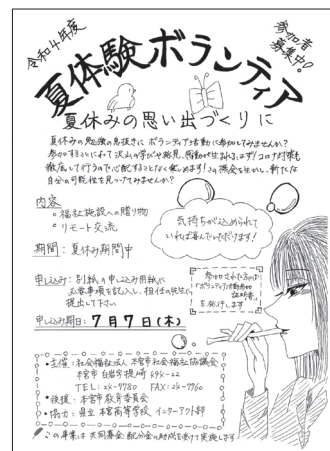 令和4年度
参加者
募集中!
夏体験ボランティア
夏休みの思い出づくりに
夏休みの勉強の息抜きに ボランティア活動に参加してみませんか?
参加することによって沢山の学びや発見、感動が生まれるはず!コロナ対策も
徹底して行うので心配することなく楽しめます!この機会を生かし、新たな
自分の可能性を見つけてみませんか?
内容
。福祉施設への贈り物
。リモート交流
気持ちが込められて
いれば喜んでいただけます!
期間:夏休み期間中
申し込み:別紙の申し込み用紙に
必要事項を記入し、担任の先生に
提出して下さい
参加された方には
「ボランティア活動参加
証明書」
を発行します
申し込み期日:7月7日(木)
・主催:社会福祉法人 本宮市社会福祉協議会
本宮市 白岩字堤崎
・後援:本宮市教育委員会
・協力:県立 本宮高等学校 インターアクト部
この事業は 共同募金 配分金の助成を受けて実施します